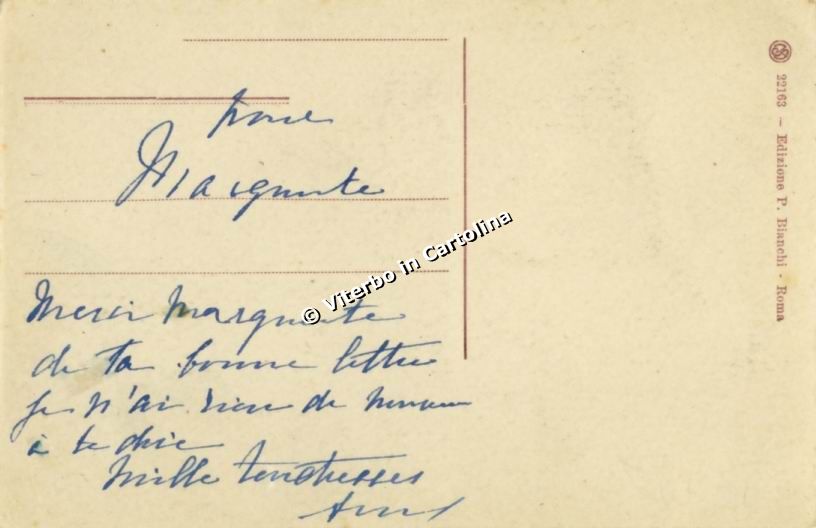 pour
Marguerite
Merci Marguerite
de ta bonne lettre
je n'ai rien de nouveau
à te dire
Mille tendresses
© Viterbo in Cartolina
22163 - Edizione P. Bianchi - Roma